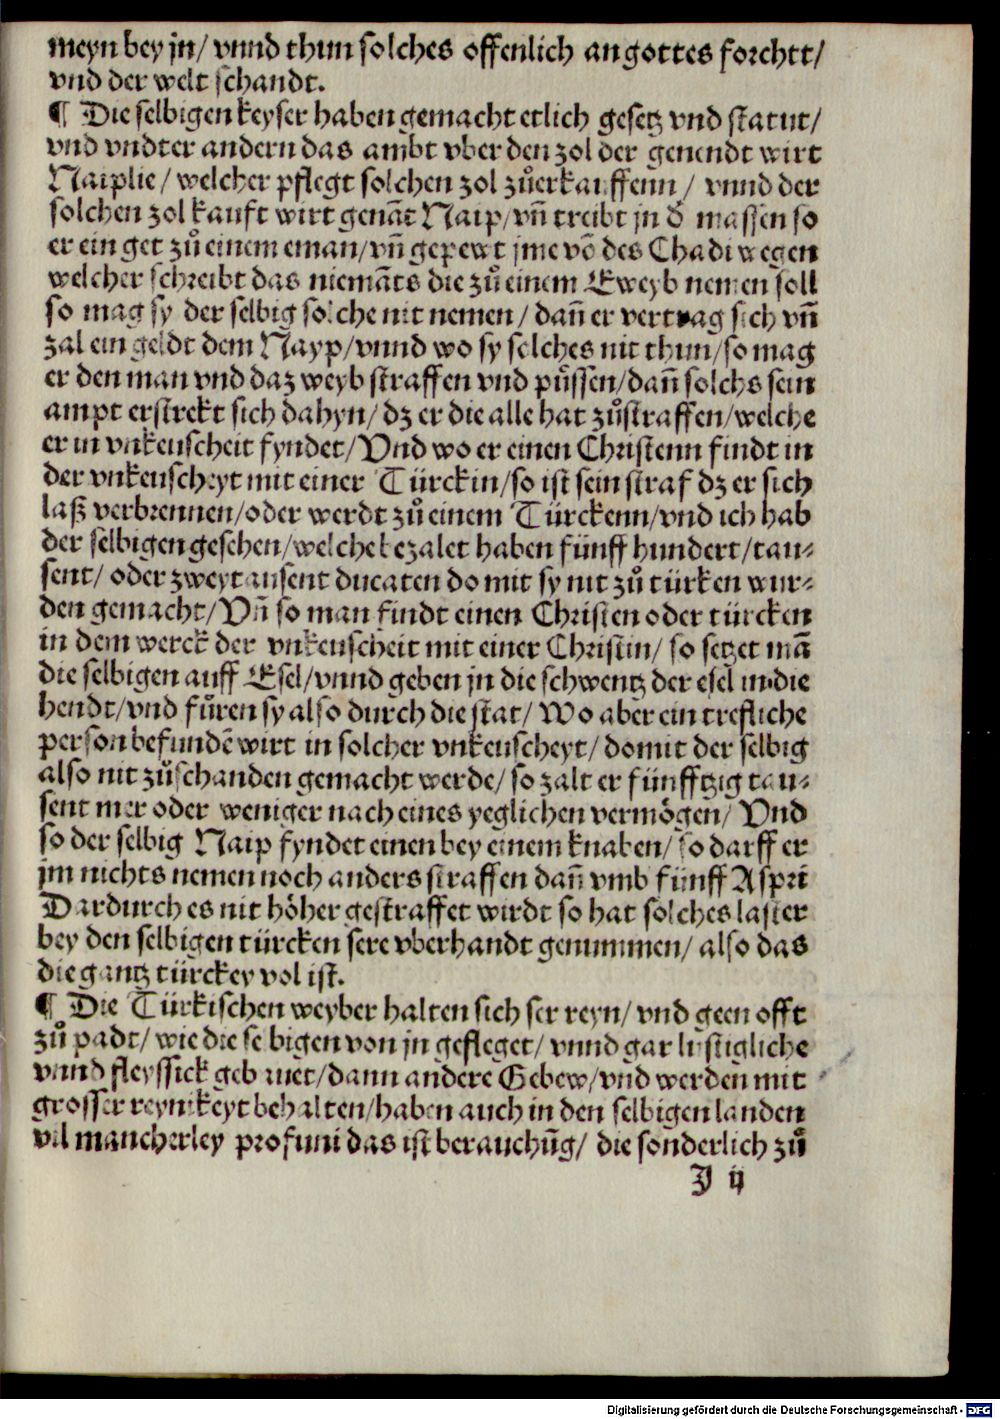 meyn bey jn/ vnnd thun solches offenlich an gottes forchtt/
vnd der welt schandt.
¶ Die selbigen keyser haben gemacht etlich gesetz vnd statut/
vnd vndter andern das ambt vber den zol der genendt wirt
Naiplie/ welcher pflegt solchen zol zuͦerkauffenn/ vnnd der
solchen zol kauft wirt genāt Naip/ vn̄ treibt jn d̕ massen so
er ein get zuͦ einem eman/ vn̄ gepewt jme vō des Chadi wegen
welcher schreibt das niemāts die zuͦ einem Eweyb nemen soll
so mag sy der selbig solche nit nemen/ dan̄ er vertrag sich vn̄
zal ein geldt dem Nayp/ vnnd wo sy solches nit thun/ so mag
er den man vnd daz weyb straffen vnd puͤssen/ dan̄ solchs sein
ampt erstrekt sich dahyn/ dz er die alle hat zuͦstraffen/ welche
er in vnkeuscheit fyndet/ Vnd wo er einen Christenn findt in
der vnkeuscheyt mit einer Türckin/ so ist sein straf dz er sich
laß verbrennen/ oder werdt zuͦ einem Türckenn/ vnd ich hab
der selbigen gesehen/ welche bezalet haben fünff hundert/ tau⸗
sent/ oder zweytausent ducaten do mit sy nit zuͦ türken wur⸗
den gemacht/ Vn̄ so man findt einen Christen oder türcken
in dem werck der vnkeuscheit mit einer Christin/ so setzet mā
die selbigen auff Esel/ vnnd geben jn die schwentz der esel in die
hendt/ vnd fuͤren sy also durch die stat/ Wo aber ein trefliche
person befundē wirt in solcher vnkeuscheyt/ domit der selbig
also nit zuͦschanden gemacht werde/ so zalt er fünfftzig tau⸗
sent mer oder weniger nach eines yeglichen vermögen/ Vnd
so der selbig Naip fyndet einen bey einem knaben/ so darff er
jm nichts nemen noch anders straffen dan̄ vmb fünff Aspri
Dardurch es nit höher gestraffet wirdt so hat solches laster
bey den selbigen türcken sere vberhandt genummen/ also das
die gantz türckey vol ist.
¶ Die Türkischen weyber halten sich ser reyn/ vnd geen offt
zuͦ padt/ wie die selbigen von jn gefleget/ vnnd gar lustigliche
vnnd fleyssick gebauet/ dann andere Gebew/ vnd werden mit
grosser reynikeyt behalten/ haben auch in den selbigen landen
vil mancherley profumi das ist berauchūg/ die sonderlich zuͦ
J ij
Digitalisierung gefördert durch die Deutsche Forschungsgemeinschaft - DFG